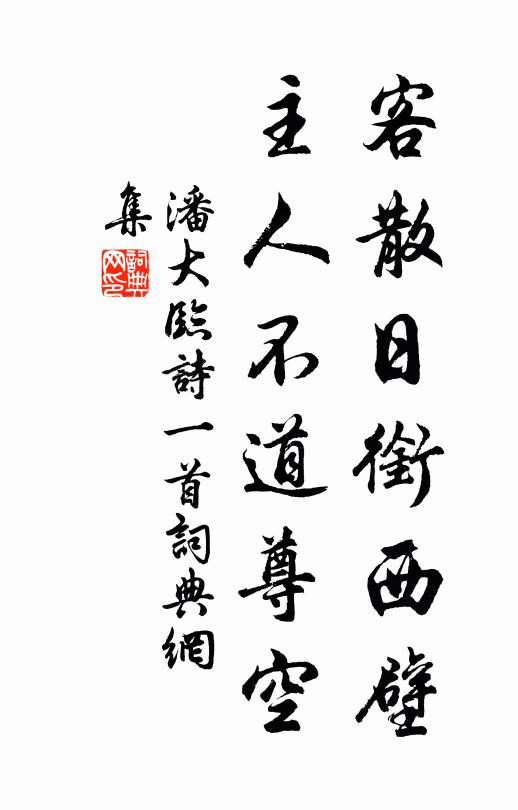 客散日銜西壁
主人不道尊空
潘大臨詩一首詞典網
集
詞典网印